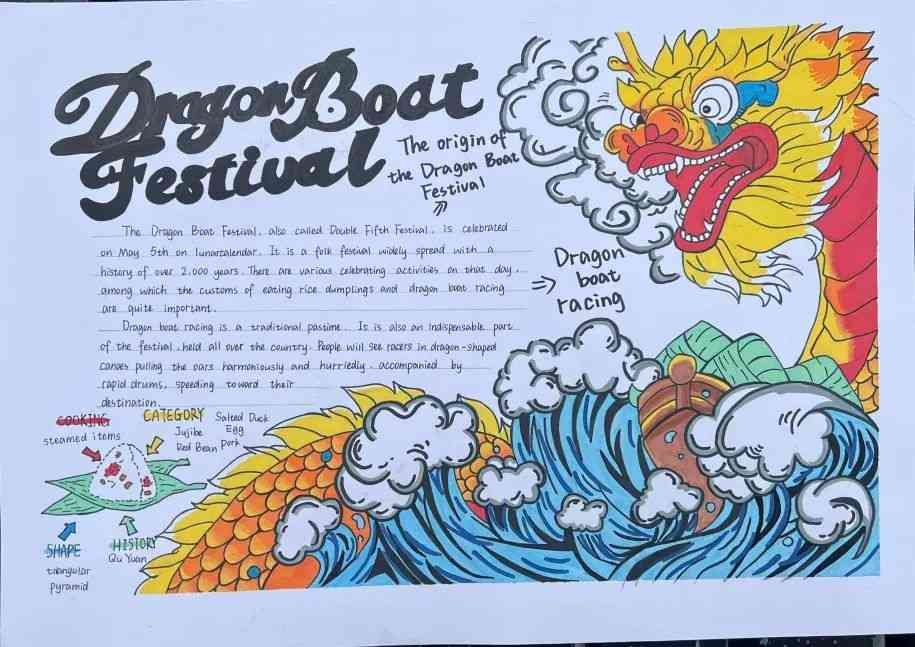 Dragon Boat
Festival
The origin of
the Dragon Boat
Festival
The Dragon Boat Festival, also called Double Fifth Festival, is celebrated
on May 5th on lunarcalendar. It is a folk festival widely spread with a
history of over 2,000 years. There are various celebrating activities on that day,
among which the customs of eating rice dumplings and dragon boat racing
are quite important.
Dragon boat racing is a traditional pastime. It is also an indispensable part
of the festival, held all over the country. People will see racers in dragon-shaped
canoes pulling the oars harmoniously and hurriedly, accompanied by
rapid drums, speeding toward their
destination.
Dragon
boat
racing
COOKING
steamed items
CATEGORY
Jujibe
Red Bean
Salted Duck
Egg
Pork
SHAPE
triangular
pyramid
HISTORY
Qu Yuan